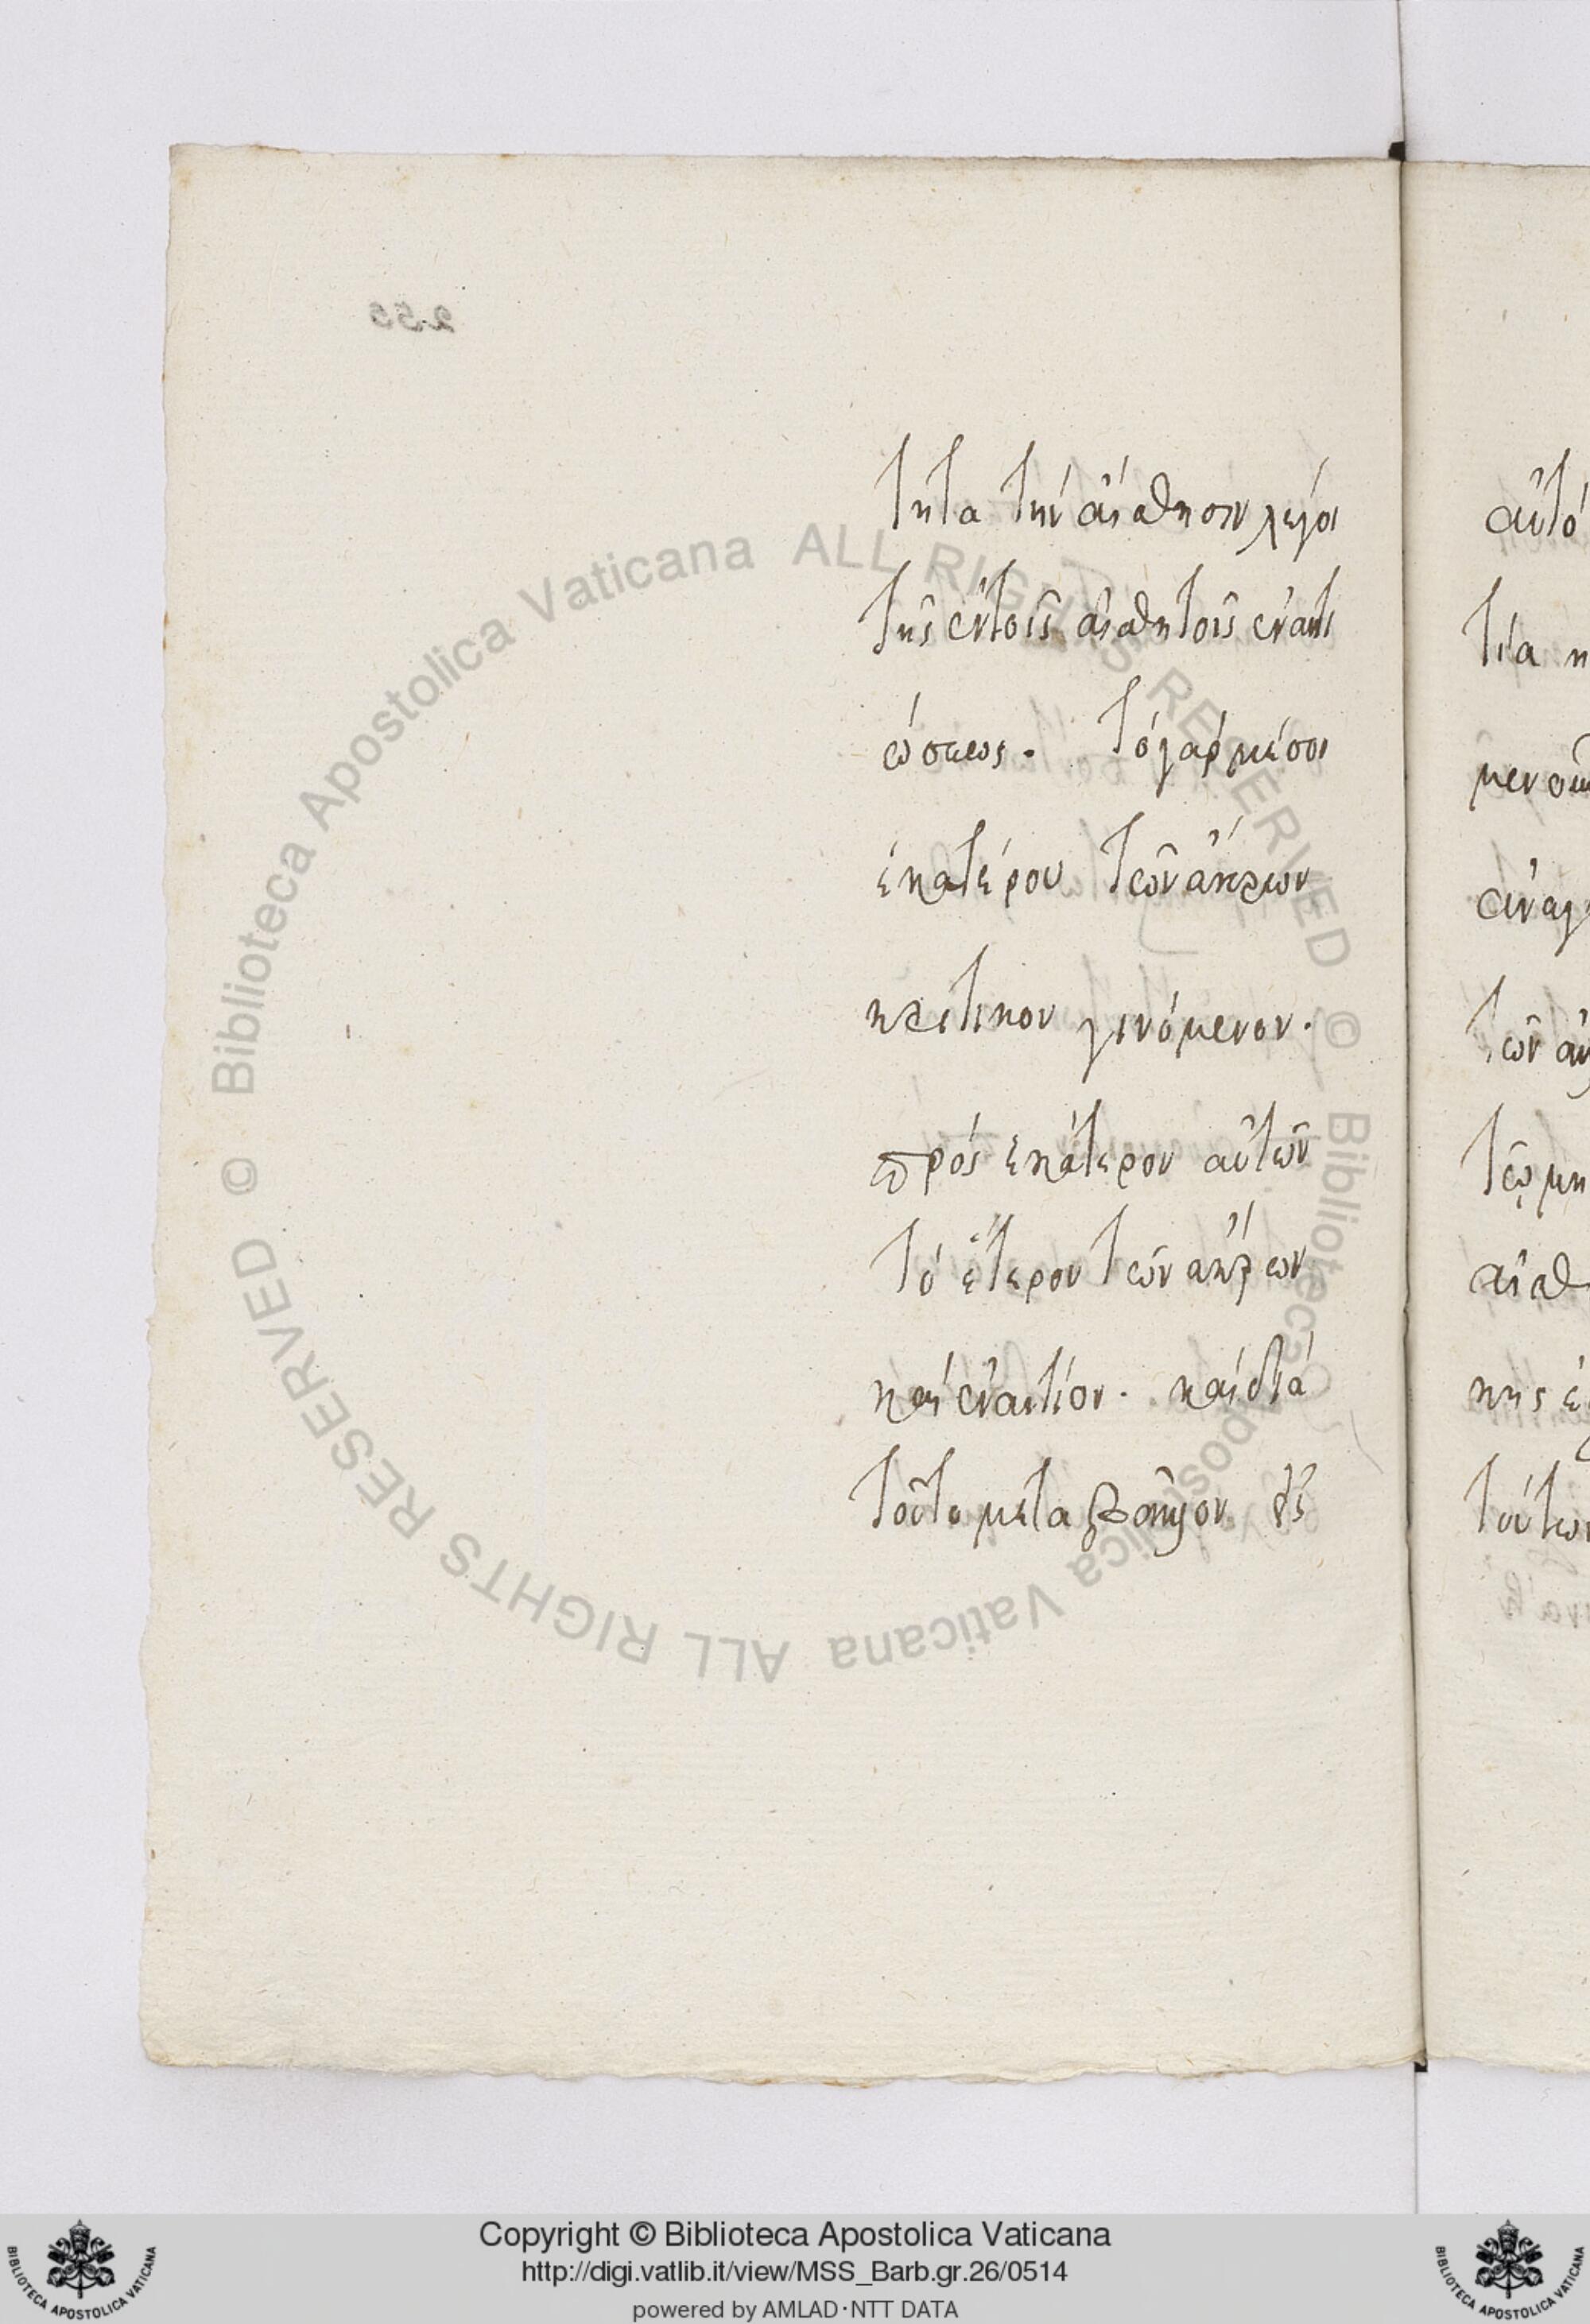 τητα τὴν αἴσθησιν λέγοι
τῆς ἐν τοῖς αἰσθητοῖς ἐναντι
ώσεως. τὸ γὰρ μέσον
ἑκατέρου τῶν ἄκρων
κριτικον γινόμενον.
πρὸς ἑκάτερον αὐτῶν
τὸ ἕτερον τῶν ἄκρων
καὶ ἐναντίον. καὶ διὰ
τοῦτο μεταξὺ
αὐτό
τία
μεν
τῶν
τῷ μη
αἰσθ
κης
τούτων
255
© Biblioteca Apostolica Vaticana ALL RIGHTS RESERVED © Biblioteca Apostolica Vaticana ALL RIGHTS RESERVED
Copyright © Biblioteca Apostolica Vaticana
http://digi.vatlib.it/view/MSS_Barb.gr.26/0514
powered by AMLAD·NTT DATA
BIBLIOTECA APOSTOLICA VATICANA
BIBLIOTECA APOSTOLICA VATICANA